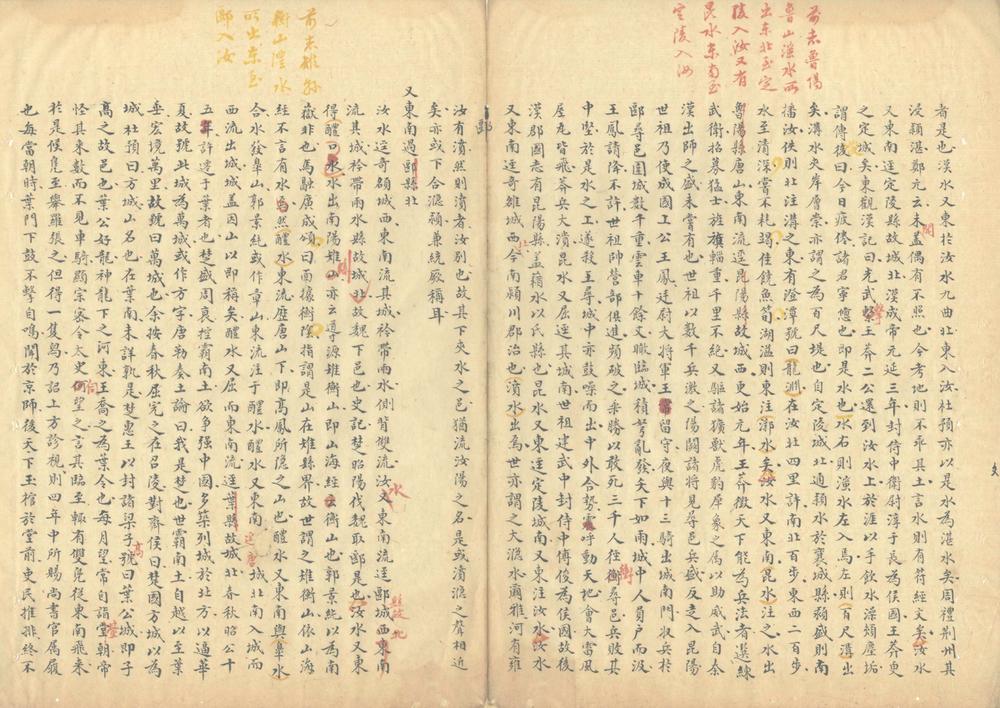 前志魯陽
魯山滍水所
出東北至定
陵入汝又有
昆水東南至
定陵入汝
者是也湛水又東於汝水九曲北東入汝杜預亦以是水為湛水矣周禮荆州其
浸潁湛鄭元云未蓋偶有不照也今考地則不乖其土言水則有符經文矣汝水
又東南逕定陵縣故城北漢成帝元延三年封侍中衛尉淳于長為侯國王莽更
之定城矣東觀漢記曰光武擊王莽二公還到汝水上於涯以手飲水澡頰塵垢
謂傅俊曰今日疲倦諸君寧憊也即是水也水右則滍水左入焉左則百尺溝出
矣溝水夾岸層崇亦謂之為百尺堤也自定陵城北通潁水於襄城縣潁盛則南
播汝佚則北注溝之東有澄潭號曰龍淵在汝北四里許南北百步東西二百步
水至清深常不耗竭佳饒魚筍湖溢則東注漷水矣汝水又東南昆水注之水出
魯陽縣唐山東南流逕昆陽縣故城西更始元年王莽徵天下能為兵法者選練
武衛招募猛士旌旗輜重千里不絶又驅諸獷獸虎豹犀象之属以助威武自秦
漢出師之盛未嘗有也世祖以數千兵徼之陽關諸將見尋邑兵盛反走入昆陽
世祖乃使成國上公王鳳廷尉大將軍王常留守夜與十三騎出城南門收兵於
郾尋邑圍城數十重雲車十餘丈瞰臨城中積弩亂發矢下如雨城中人負户而汲
王鳳請降不許世祖帥營部俱進頻破之乗勝以敢死三千人徑衝尋邑兵敗其
中堅於是水之上遂殺王尋城中亦鼓噪而出中外合勢震呼動天地會大雷風
屋瓦皆飛莽兵大潰昆水又屈逕其城南世祖建武中封侍中傅俊為侯國故後
漢郡國志有昆陽縣蓋藉水以氏縣也昆水又東逕定陵城南又東注汝水汝水
又東南逕奇雒城西北今南潁川郡治也濆水出焉世亦謂之大㶏水爾雅河有雍
前志雉縣
衡山澧水
所出東至
郾入汝
汝有濆然則濆者汝别也故其下夾水之邑猶流汝陽之名是或濆㶏之聲相近
矣亦或下合㶏潁兼統厥稱耳
又東南過郾縣北
汝水逕奇頟城西東南流其城衿帶兩水側背雙流汝水又東南流逕郾城西東南
流其城衿帶兩水縣故城北故魏下邑也史記楚昭陽伐魏取郾是也汝水又東
得醴口水水出南陽雉山亦云導源雉衡山即山海經云衡山也郭景純以為南
嶽非也馬融廣成頌曰面據衡陰指謂是山在雉縣界故世謂之雉衡山依山海
經不言有水然醴水東流歷唐山下即高鳳所隱之山也醴水又東南與臯水
合水發臯山郭景純或作章山東流注于醴水醴水又東南逕唐城北南入城而
西流出城城蓋因山以即稱矣醴水又屈而東南流逕葉縣故城北春秋昭公十
五年許遷于葉者也楚盛周衰控霸南土欲争强中國多築列城於北方以逼華
夏故號此城為萬城或作方字唐勒奏土論曰我是楚也世霸南土自越以至葉
垂宏境萬里故號曰萬城也余按春秋屈完之在召陵對齊侯曰楚國方城以為
城杜預曰方城山名也在葉南未詳孰是楚惠王以封諸梁子高號曰葉公城即子
高之故邑也葉公好龍神龍下之河東王喬之為葉令也每月望常自詣堂朝帝
怪其来數而不見車騎顯宗密令太史伺望之言其臨至輒有雙鳧從東南飛来
於是候鳧至舉羅張之但得一隻舄乃詔上方診視則四年中所賜尚書官属履
也每當朝時葉門下鼓不擊自鳴聞於京師後天下玉棺於堂前吏民推排終不